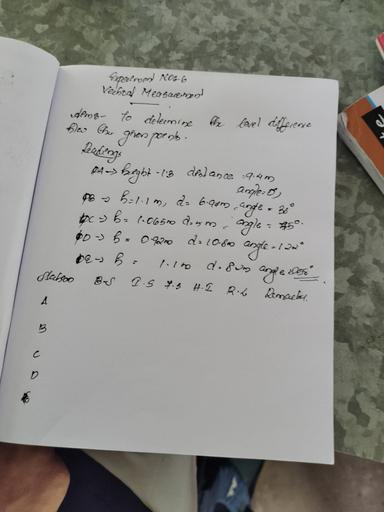 Experiment No:-6
Vertical Measurement
Aim:- To determine the level difference
b/w the given points.
Readings
OA → height - 1.3 distance = 9.4m
angle = 0,
OB → h = 1.1m, d = 6.9m, angle = 30°
OC → h = 1.065m d = m, angle = 75°
OD → h = 0.92m d = 10.8m angle = 122°
OE → h = 1.1m d = 8m angle
Station B.S I.S F.S H.I R.L Remarks
A
B
C
D
E